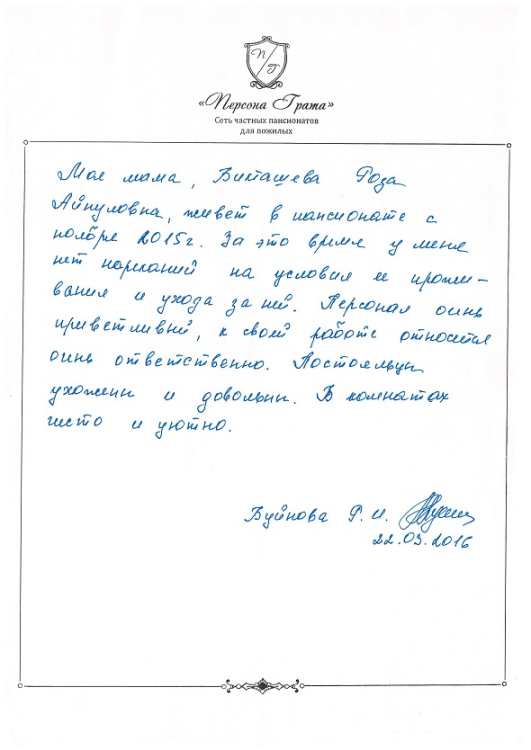 П/Г
«Персона Грата»
Сеть частных пансионатов
для пожилых
Моя мама, Викташева Роза
Айнуловна, живет в пансионате с
ноября 2015г. За это время у меня
нет нареканий на условия ее прожи-
вания и ухода за ней. Персонал очень
приветливый, к своей работе относится
очень ответственно. Постояльцы
ухожены и довольны. В комнатах
чисто и уютно.
Буйнова Р. И.
22.03.2016